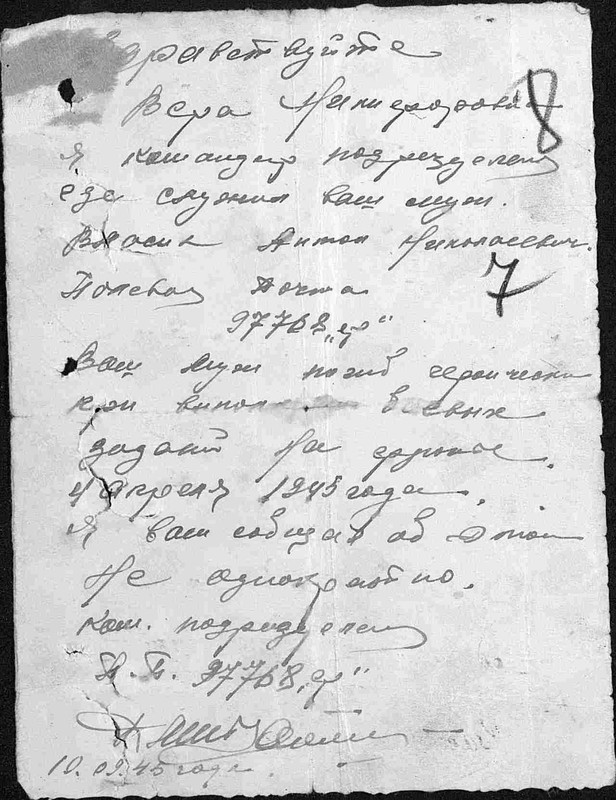 Здравствуйте
Вера
8
я командир подрезделени
где служил ваш муж.
Власик Антон Николаевич.
Полевая почта
7
97768 „ф"
Ваш муж погиб героически
при выпол боевых
заданй На фронте.
4 Апреля 1945 года.
Я вам собщал об этом
Не однократно.
Ком. подрезделени
П.П. 97768 „ф"
10.09.45 года.